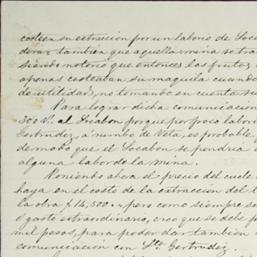 costien su estruccion por un laborio de Soca
deros, tambien que aquella mina se tra
siendo notorio que entonces los frutos,
apenas costeaban su maquila cuando
de utilidad, no tomando en cuenta su
Para lograr dicha comunicación
300 Vs. al Socabon porque por poco labori
Gertrudiz, a rumbo de Veta, es probable
de modo que el Socabon se pondria
alguna labor de la mina.
Poniendo ahora el precio del cuele
haya en el costo de la extraccion del t
la obra $14,500.. pero como siempre so
ó gasto extraordinario, creo que se debe
mil pesos, para poder dar tambien
comunicacion con Sta. Gertrudiz.